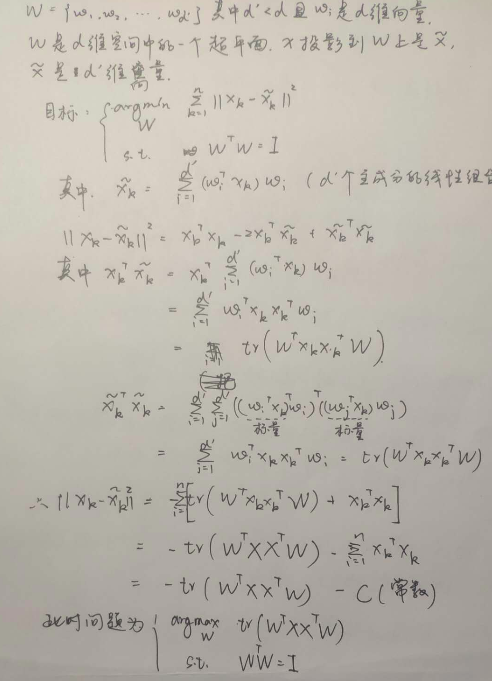 W = {w₁, w₂, ⋯, w_d'} 其中 d' < d 且 wᵢ 是 d维向量.
W 是 d维空间中的一个超平面. x 投影到 W 上是 x̃,
x̃ 是 d'维向量.
目标: { argmin_W Σ_{k=1}^{n} ||x_k - x̃_k||²
s.t. WᵀW = I
其中. x̃_k = Σ_{i=1}^{d'} (wᵢᵀx_k) wᵢ ( d'个主成分的线性组合
||x_k - x̃_k||² = x_kᵀx_k - 2x_kᵀx̃_k + x̃_kᵀx̃_k
其中 x_kᵀx̃_k = x_kᵀ Σ_{i=1}^{d'} (wᵢᵀx_k) wᵢ
= Σ_{i=1}^{d'} wᵢᵀx_k x_kᵀwᵢ
= tr(Wᵀx_k x_kᵀW)
x̃_kᵀx̃_k = Σ_{i=1}^{d'} Σ_{j=1}^{d'} ((wᵢᵀx_k)wᵢ)ᵀ((wⱼᵀx_k)wⱼ)
标量 标量
= Σ_{i=1}^{d'} wᵢᵀx_k x_kᵀwᵢ = tr(Wᵀx_k x_kᵀW)
∴ ||x_k - x̃_k||² = -Σ_{i=1}^{n} [tr(Wᵀx_k x_kᵀW) + x_kᵀx_k]
= -tr(WᵀXXᵀW) - Σ_{i=1}^{n} x_kᵀx_k
= -tr(WᵀXXᵀW) - C (常数)
此时问题为 { argmax_W tr(WᵀXXᵀW)
s.t. WᵀW = I